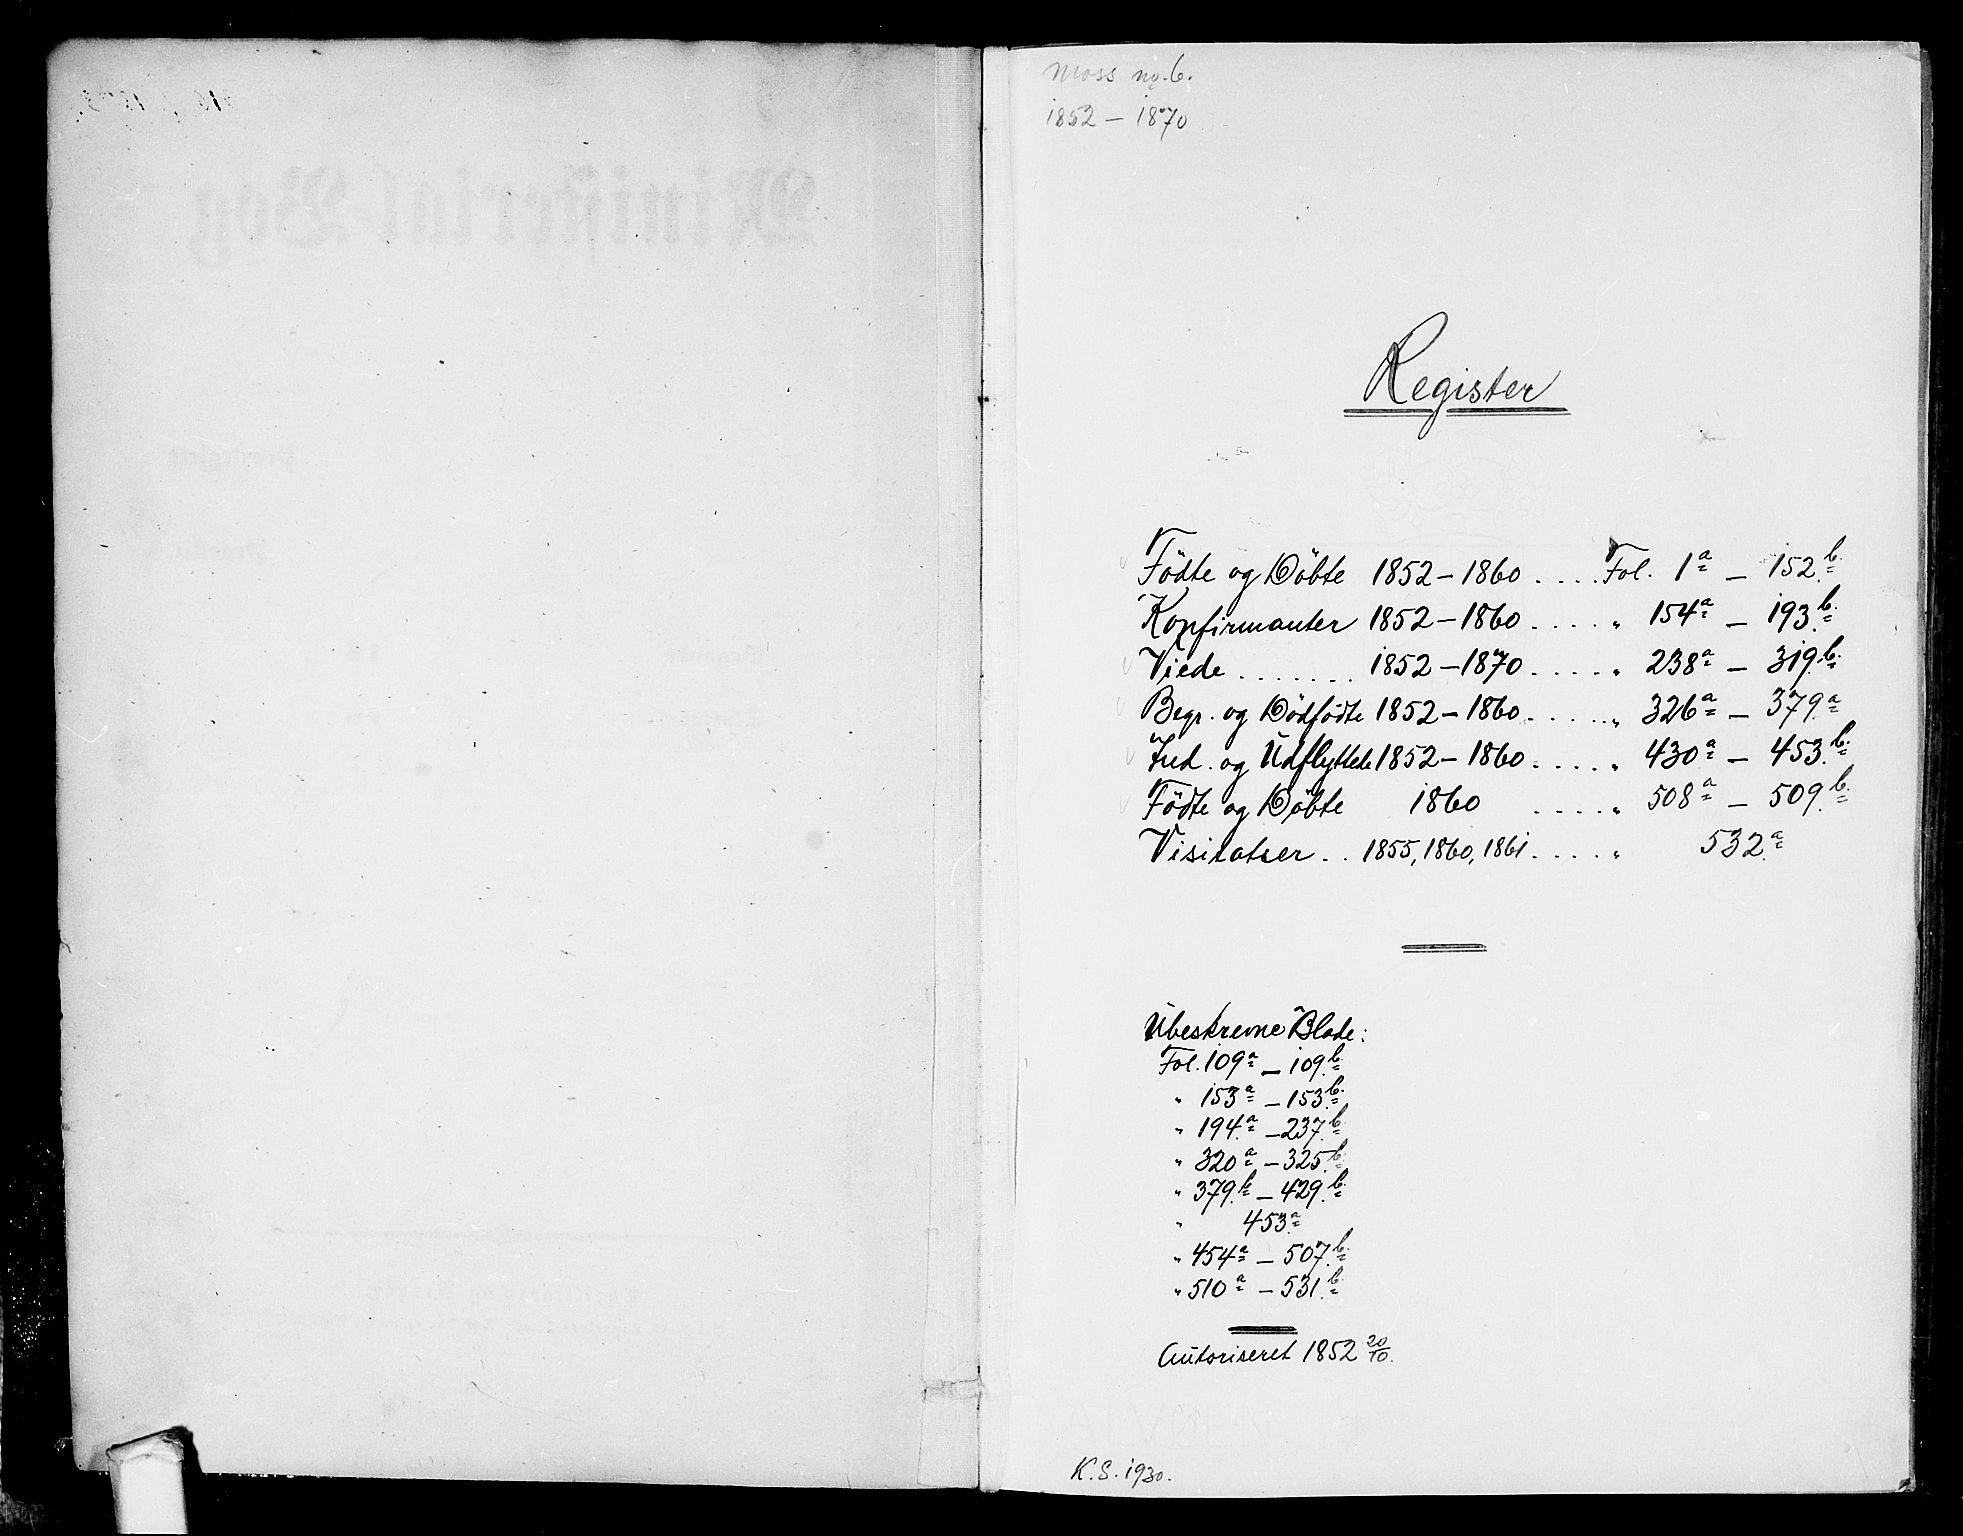 Ministerial-Bog
Moss no. 6.
1852 – 1870
Register
Födte og Döbte 1852 – 1860 . . . . Fol. 1a – 152b.
Konfirmanter 1852 – 1860 . . . . „ 154a – 193b.
Viede . . . . . . . 1852 – 1870 . . . . „ 238a – 319b.
Begr. og Dödfödte 1852 – 1860 . . . . „ 326a – 379a
Ind. og Udflyttede 1852 – 1860 . . . . „ 430a – 453b.
Födte og Döbte 1860 . . . . „ 508a – 509b.
Visitatser . . 1855, 1860, 1861 . . . . „ 532a
Ubeskrevne Blade:
Fol. 109a – 109b.
„ 153a – 153b.
„ 194a – 237b.
„ 320a – 325b.
„ 379b – 429b.
„ 453a
„ 454a – 507b.
„ 510a – 531b.
Autoriseret 1852 20/10.
K.S. 1930.